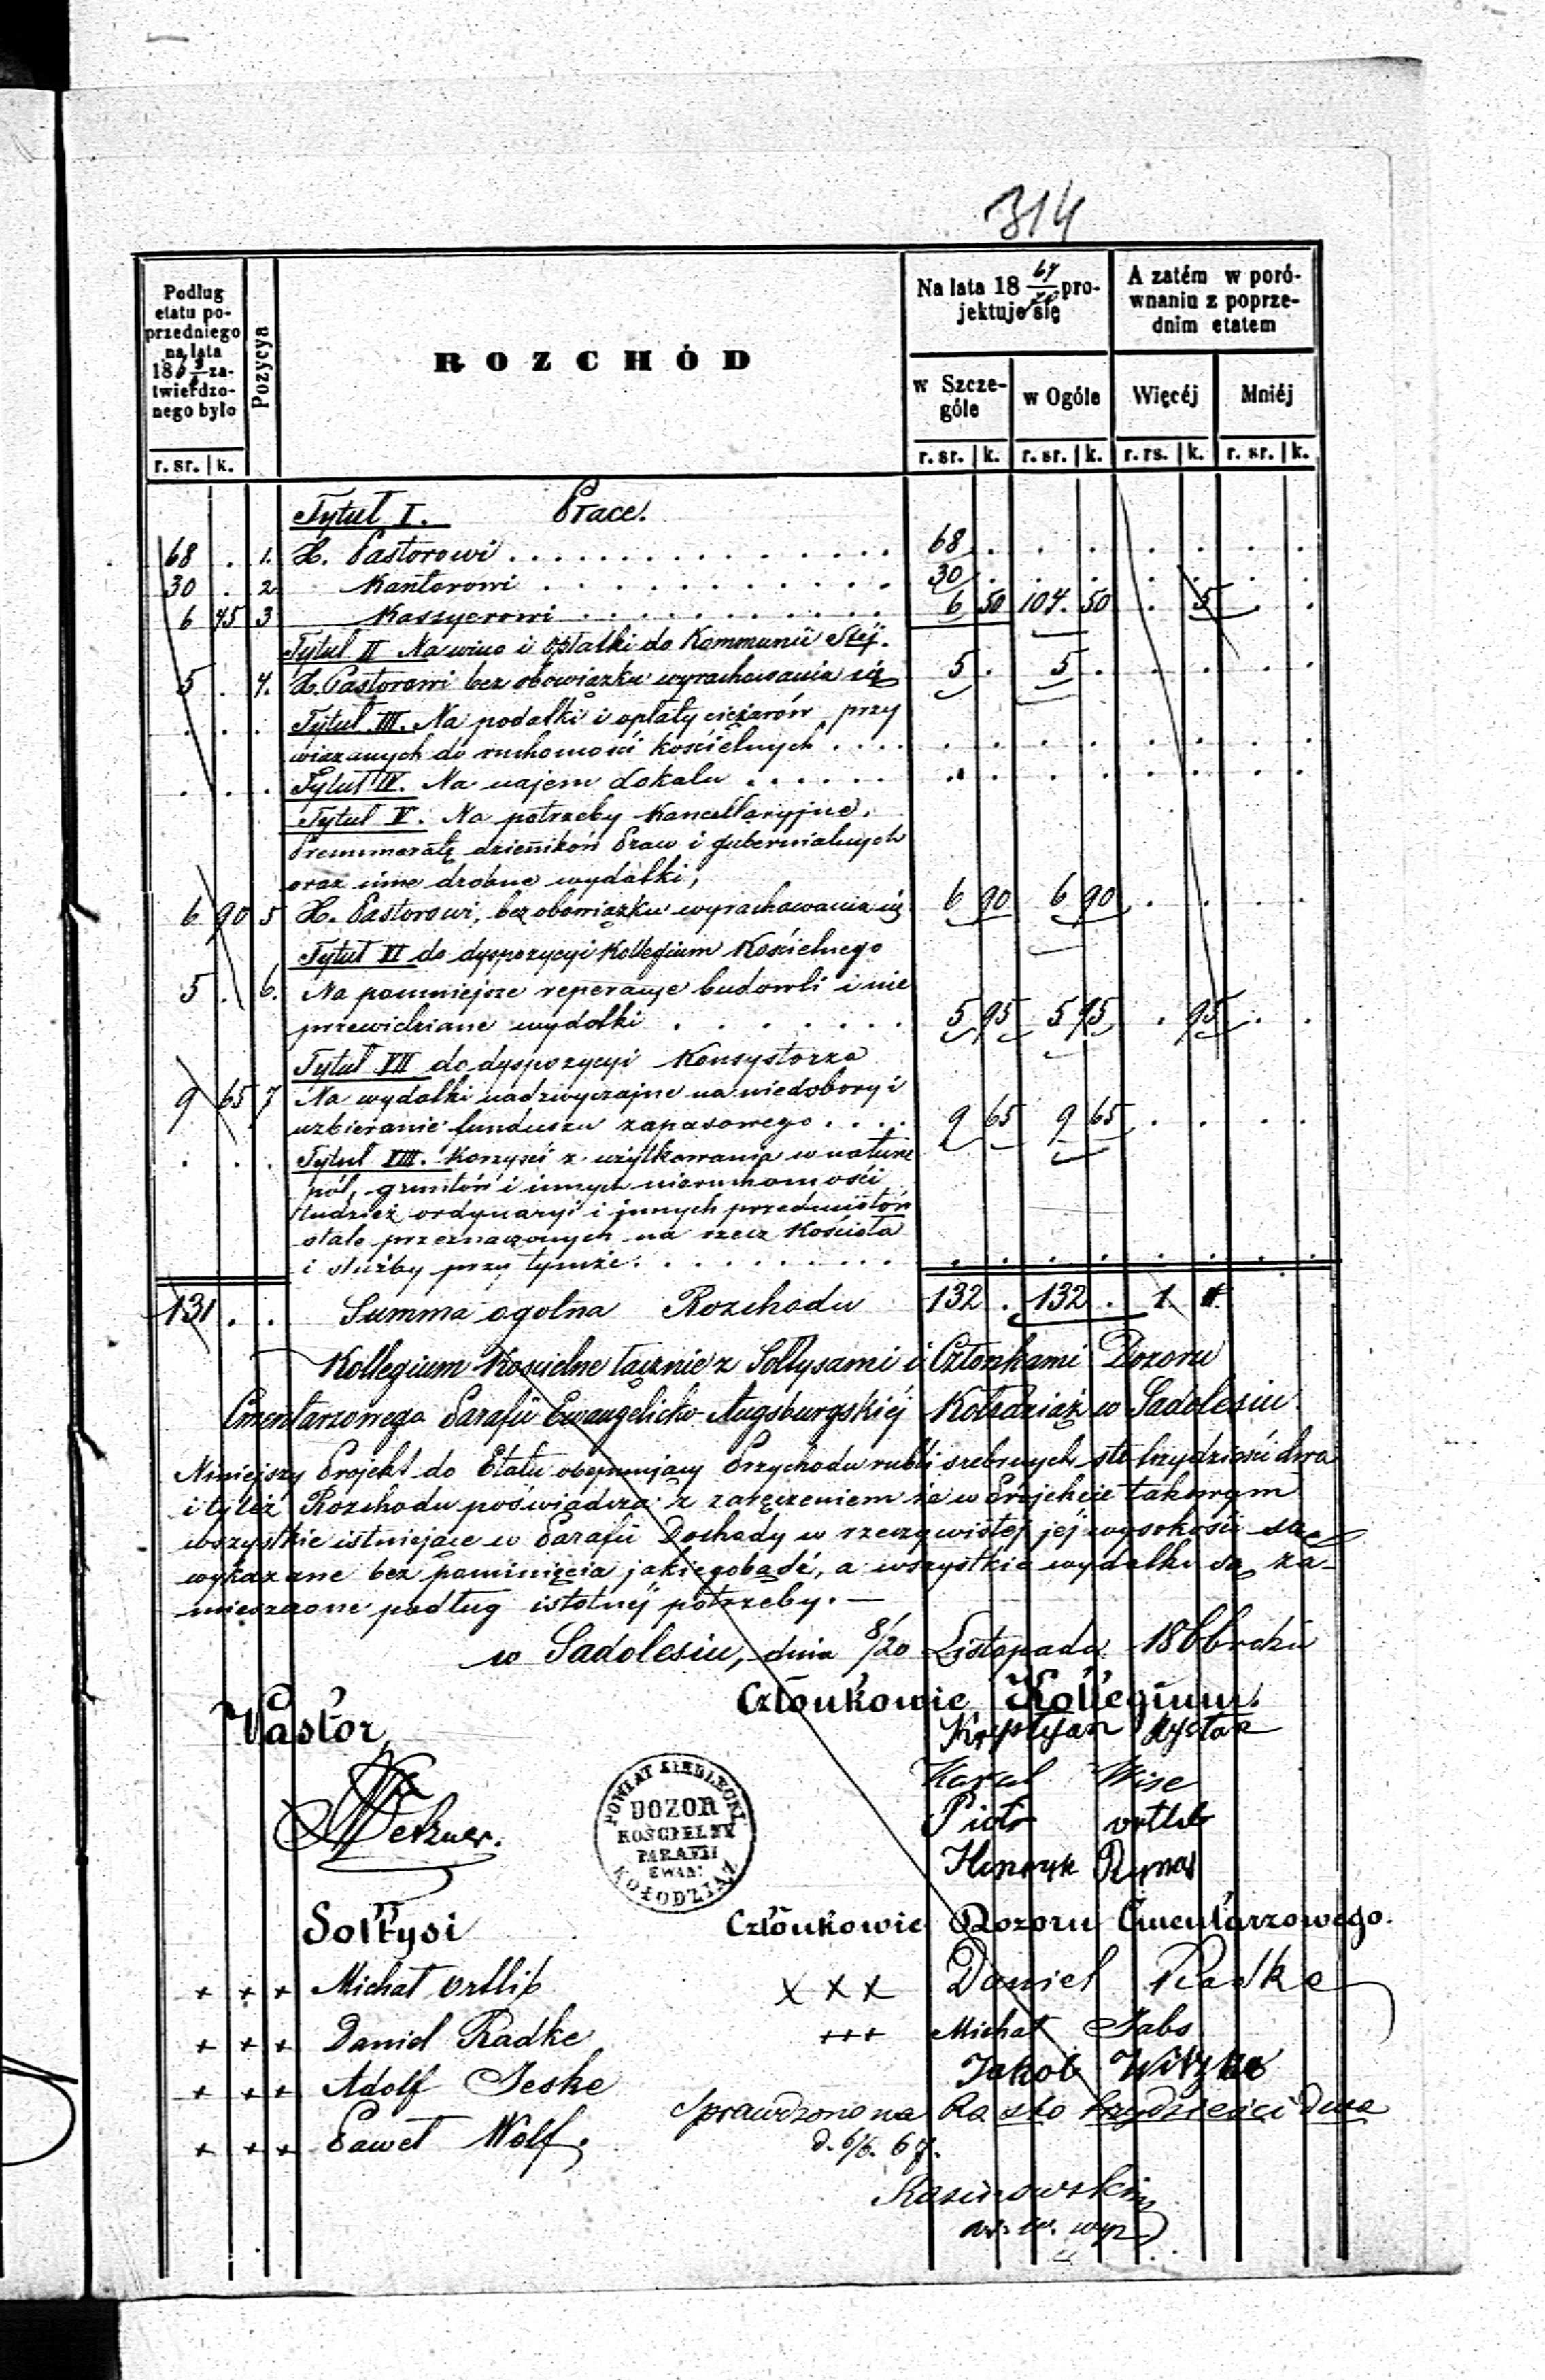 314
Podług etatu poprzedniego na lata 186 zatwierdzonego było
Pozycya
ROZCHÓD
Na lata 18 67 projektuje się
A zatém w porównaniu z poprzednim etatem
w Szczególe
w Ogóle
Więcéj
Mniéj
r. sr. k.
r. sr. k.
r. sr. k.
r. rs. k.
r. sr. k.
Tytuł I. Płace.
68 . 1. X. Pastorowi 68 .
30 . 2 Kantorowi 30 .
6 45 3 Kassyerowi 6 50 104. 50 . 5
Tytuł II Na wino i opłatki do Kommunii Stéj.
5 . 4. X. Pastorowi bez obowiązku wyrachowania się 5 . 5 .
Tytuł III. Na podatki i opłaty ciężarów przy
wiązanych do ruchomości kościelnych
Tytuł IV. Na najem Lokalu
Tytuł V. Na potrzeby Kancellaryjne,
Prenumeratę dzienników Praw i gubernialnych
oraz inne drobne wydatki,
6 90 5 X. Pastorowi, bez obowiązku wyrachowania się 6 90 6 90
Tytuł VI do dyspozycyi Kollegium Kościelnego
5 . 6. Na pomniejsze reperacye budowli i nie
przewidziane wydatki 5 95 5 95 . 95
Tytuł VII do dyspozycyi Konsystorza
9 65 7 Na wydatki nadzwyczajne na niedobory i
uzbieranie funduszu zapasowego 9 65 9 65
Tytuł VIII. Korzyści z użytkowania w naturze
pól, gruntów i innych nieruchomości
tudzież ordynaryi i innych przedmiotów
stale przeznaczonych na rzecz Kościoła
i służby przy tymże
131 . . Summa ogólna Rozchodu 132 . 132 . 1
Kollegium Kościelne łącznie z Sołtysami i Członkami Dozoru
Cmentarzowego Parafii Ewangelicko-Augsburgskiéj Kołodziąż w Sadolesiu
Niniejszy Projekt do Etatu obejmujący Przychodu rubli srebrnych sto trzydzieści dwa
i tyleż Rozchodu poświadcza z zaręczeniem że w Projekcie takowym
wszystkie istniejące w Parafii Dochody w rzeczywistéj jéj wysokości są
wykazane bez pominięcia jakiegobądź, a wszystkie wydatki są za-
mieszczone podług istotnéj potrzeby. —
w Sadolesiu, dnia 8/20 Listopada 1866 roku
Członkowie Kollegium.
Pastor,
Karol Wise
Piotr
Henryk
POWIAT SIEDLECKI
DOZOR
KOŚCIELNY
PARAFII
EWAN:
KOŁODZIĄŻ
Sołtysi
Członkowie Dozoru Cmentarzowego.
+ + + Michał Ortlib
X X X Daniel Radke
+ + + Daniel Radke
+++ Michał Jabs
+ + + Adolf Jeske
Jakob Witzke
+ + + Paweł Wolf.
Sprawdzono na Rs sto trzydzieści dwa
d. 6/6. 67.